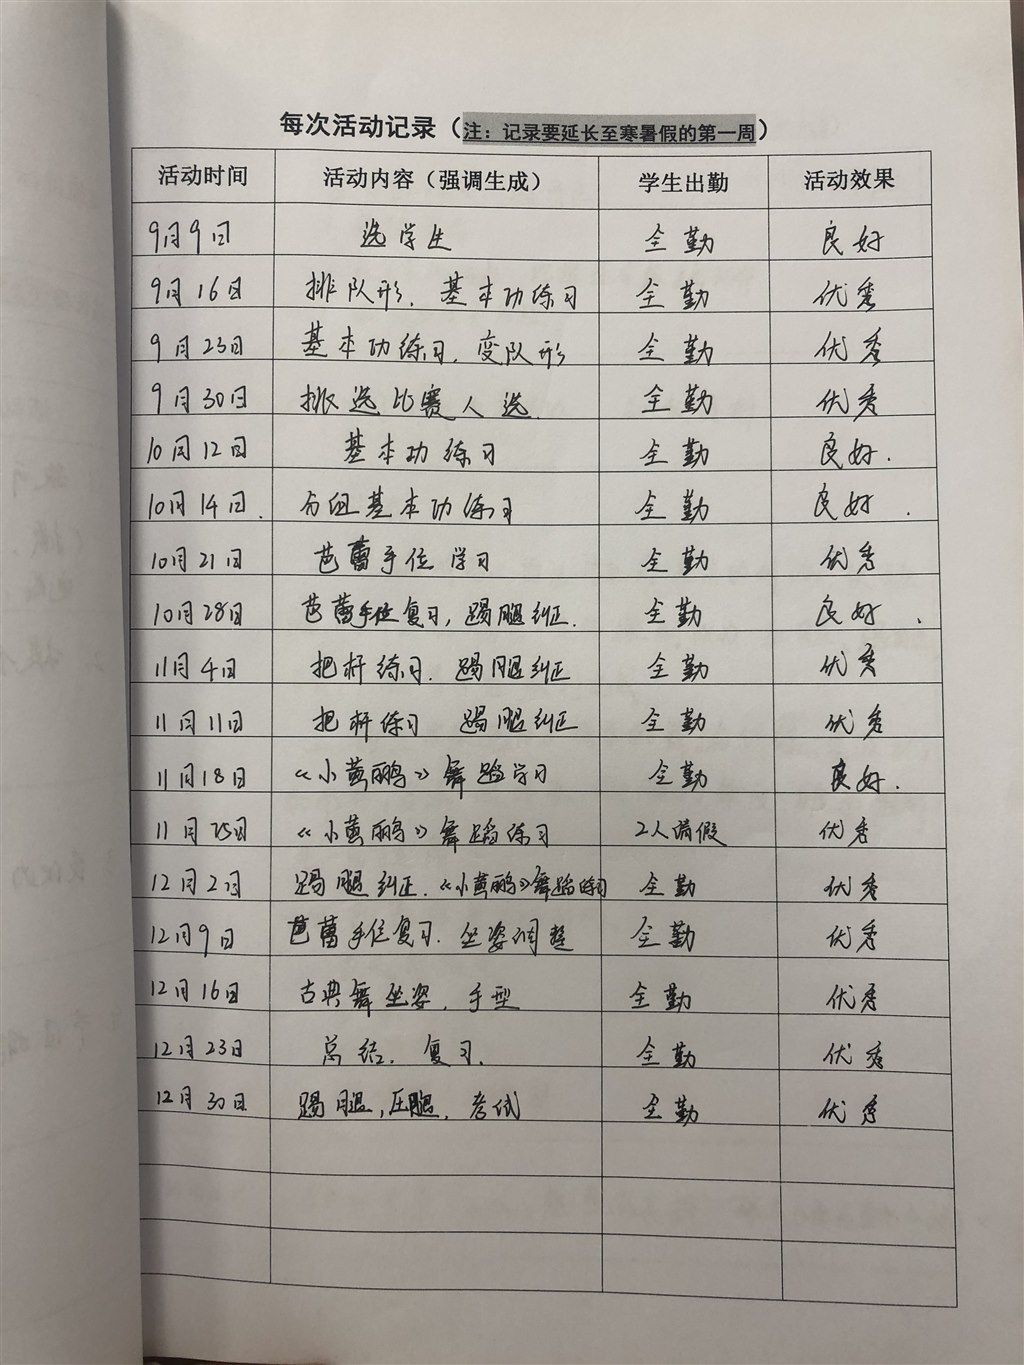 每次活动记录（注：记录要延长至寒暑假的第一周）
活动时间 活动内容（强调生成） 学生出勤 活动效果
9月9日 选学生 全勤 良好
9月16日 排队形、基本功练习 全勤 优秀
9月23日 基本功练习，变队形 全勤 优秀
9月30日 挑选比赛人选. 全勤 优秀
10月12日 基本功练习 全勤 良好.
10月14日. 分组基本功练习 全勤 良好.
10月21日 芭蕾手位学习 全勤 优秀
10月28日 芭蕾手位复习，踢腿纠正. 全勤 良好.
11月4日 把杆练习. 踢腿纠正 全勤 优秀
11月11日 把杆练习 踢腿纠正 全勤 优秀
11月18日 《小黄鹂》舞蹈学习 全勤 良好.
11月25日 《小黄鹂》舞蹈练习 2人请假 优秀
12月2日 踢腿纠正.《小黄鹂》舞蹈练习 全勤 优秀
12月9日 芭蕾手位复习. 坐姿调整 全勤 优秀
12月16日 古典舞坐姿，手型 全勤 优秀
12月23日 总结. 复习. 全勤 优秀
12月30日 踢腿，压腿，考试 全勤 优秀